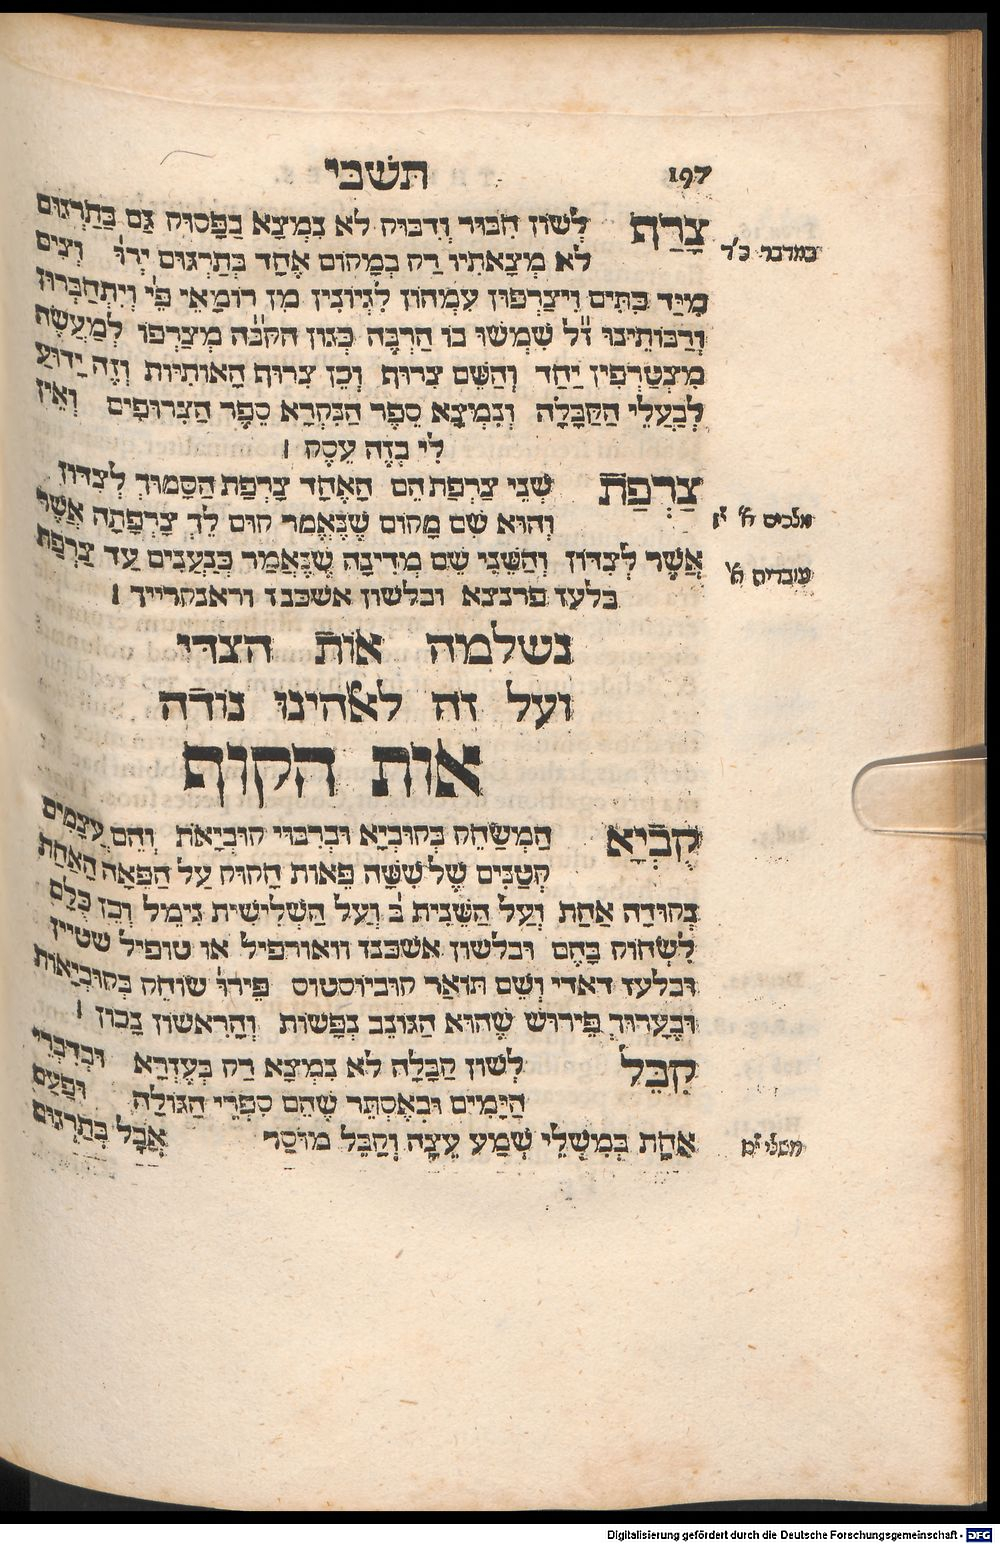 197 תשבי
צָרַף לְשׁוֹן חִבּוּר וְדִבּוּק לֹא נִמְצָא בַפָּסוּק גַּם בַּתַּרְגּוּם
במדבר כ'ד
לֹא מְצָאתִיו רַק בְמָקוֹם אֶחָד בְּתַרְגּוּם יְרוּ' וְצִים
מִיַּד כִּתִּים וִיצַרְפוּן עִמְהוֹן לִגְיוֹנִין מִן רוֹמָאֵי פֵּי' וְיִתְחַבְּרוּן
וְרַבּוֹתֵינוּ ז"ל שִׁמְשׁוּ בוֹ הַרְבֵּה כְּגוֹן הקב"ה מְצָרְפוֹ לְמַעֲשֶׂה
מִצְטָרְפִין יַחַד וְהַשֵּׁם צִרוּף וְכֵן צִרוּף הָאוֹתִיּוֹת וְזֶה יָדוּעַ
לְבַעֲלֵי הַקַּבָּלָה וְנִמְצָא סֵפֶר הַנִּקְרָא סֵפֶר הַצִּרוּפִים וְאֵין
לִי בְזֶה עֵסֶק ׀
צָרְפַת שְׁנֵי צָרְפַת הֵם הָאֶחָד צָרְפַת הַסָּמוּךְ לְצִדּוֹן
וְהוּא שֵׁם מָקוֹם שֶׁנֶּאֱמַר קוּם לֵךְ צָרְפָתָה אֲשֶׁר
מלכים א' י'ז
אֲשֶׁר לְצִדּוֹן וְהַשֵּׁנִי שֵׁם מְדִינָה שֶׁנֶּאֱמַר כְּנַעֲנִים עַד צָרְפַת
עובדיה א'
בלעז פרנצא ובלשון אשכנז וראנקרייך ׀
נשלמה אות הצדי
ועל זה לאלהינו נודה
אות הקוף
קֻבְיָא הַמְשַׂחֵק בְּקוּבְיָא וּבְרִבּוּי קוּבִיאֹת וְהֵם עֲצָמִים
קְטַנִּים שֶׁל שִׁשָּׁה פֵּאוֹת חָקוּק עַל הַפֵּאָה הָאַחַת
נְקוּדָה אַחַת וְעַל הַשֵּׁנִית ב' וְעַל הַשְּׁלִישִׁית גִימֶל וְכֵן כֻּלָּם
לִשְׂחוֹק בָּהֶם ובלשון אשכנז וואורפיל או טופיל שטיין
ובלעז דאדי וְשֵׁם תּוֹאַר קוביוסטוס פֵּירוּ' שׂוֹחֵק בְּקוּבִיָאוֹת
וּבֶעָרוּךְ פֵּירוּשׁ שֶׁהוּא הַגּוֹנֵב נְפָשׁוֹת וְהָרִאשׁוֹן נָכוֹן ׀
קִבֵּל לְשׁוֹן קַבָּלָה לֹא נִמְצָא רַק בְּעֶזְרָא וּבְדִבְרֵי
הַיָּמִים וּבְאֶסְתֵּר שֶׁהֵם סִפְרֵי הַגּוֹלָה וּפַעַם
אַחַת בְּמִשְׁלֵי שְׁמַע עֵצָה וְקַבֵּל מוּסָר אֲבָל בְּתַרְגּוּם
משלי י'ט
Digitalisierung gefördert durch die Deutsche Forschungsgemeinschaft - DFG